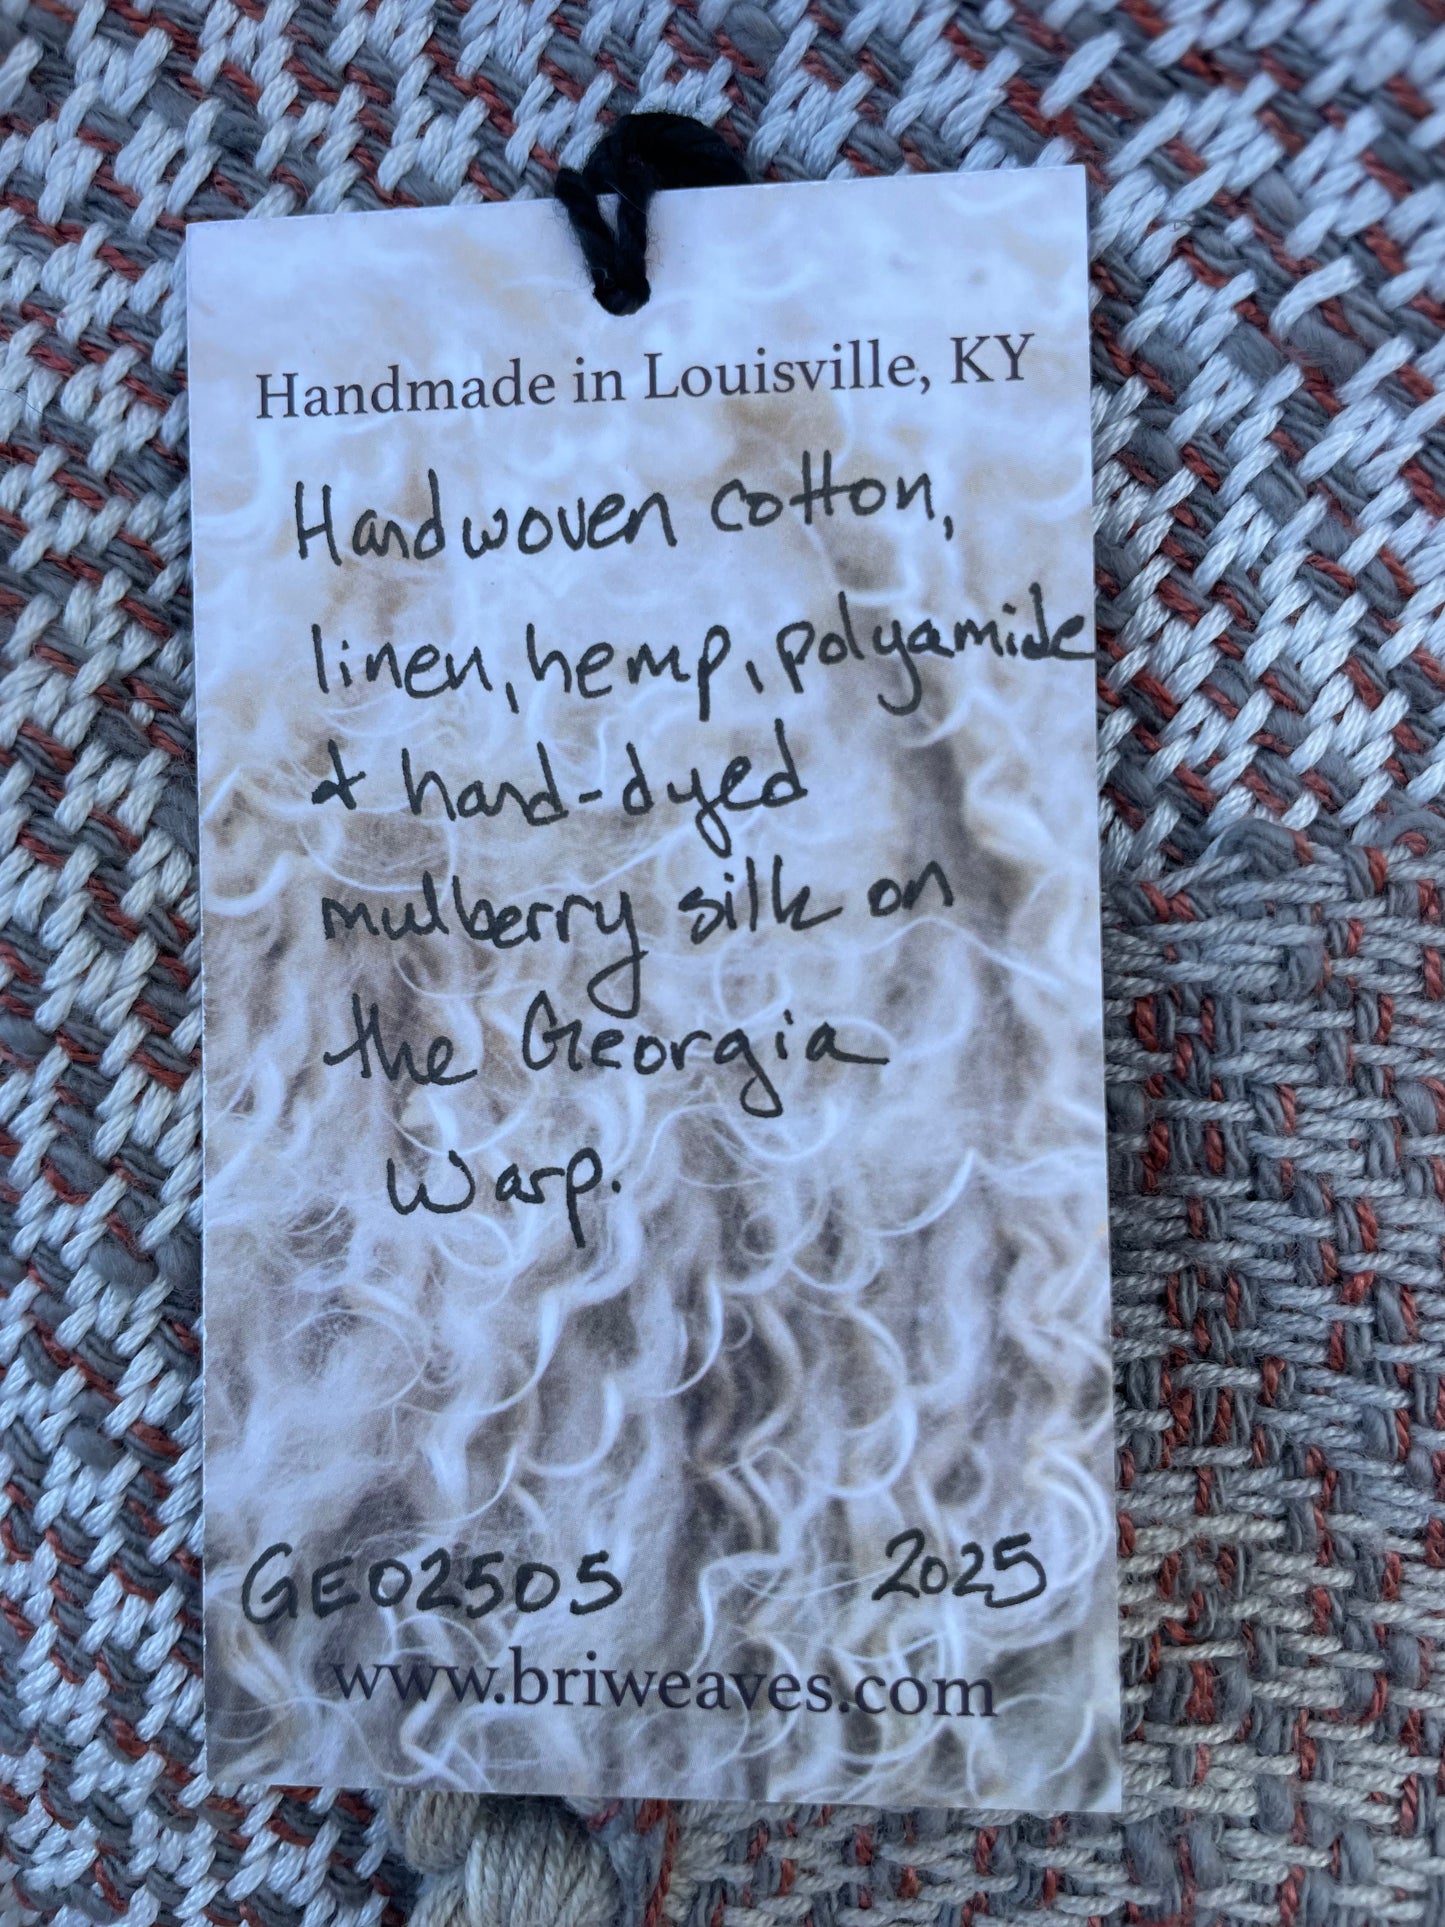 Handmade in Louisville, KY
Handwoven cotton,
linen, hemp, polyamide
+ hand-dyed
mulberry silk on
the Georgia
Warp.
GE02505 2025
www.briweaves.com